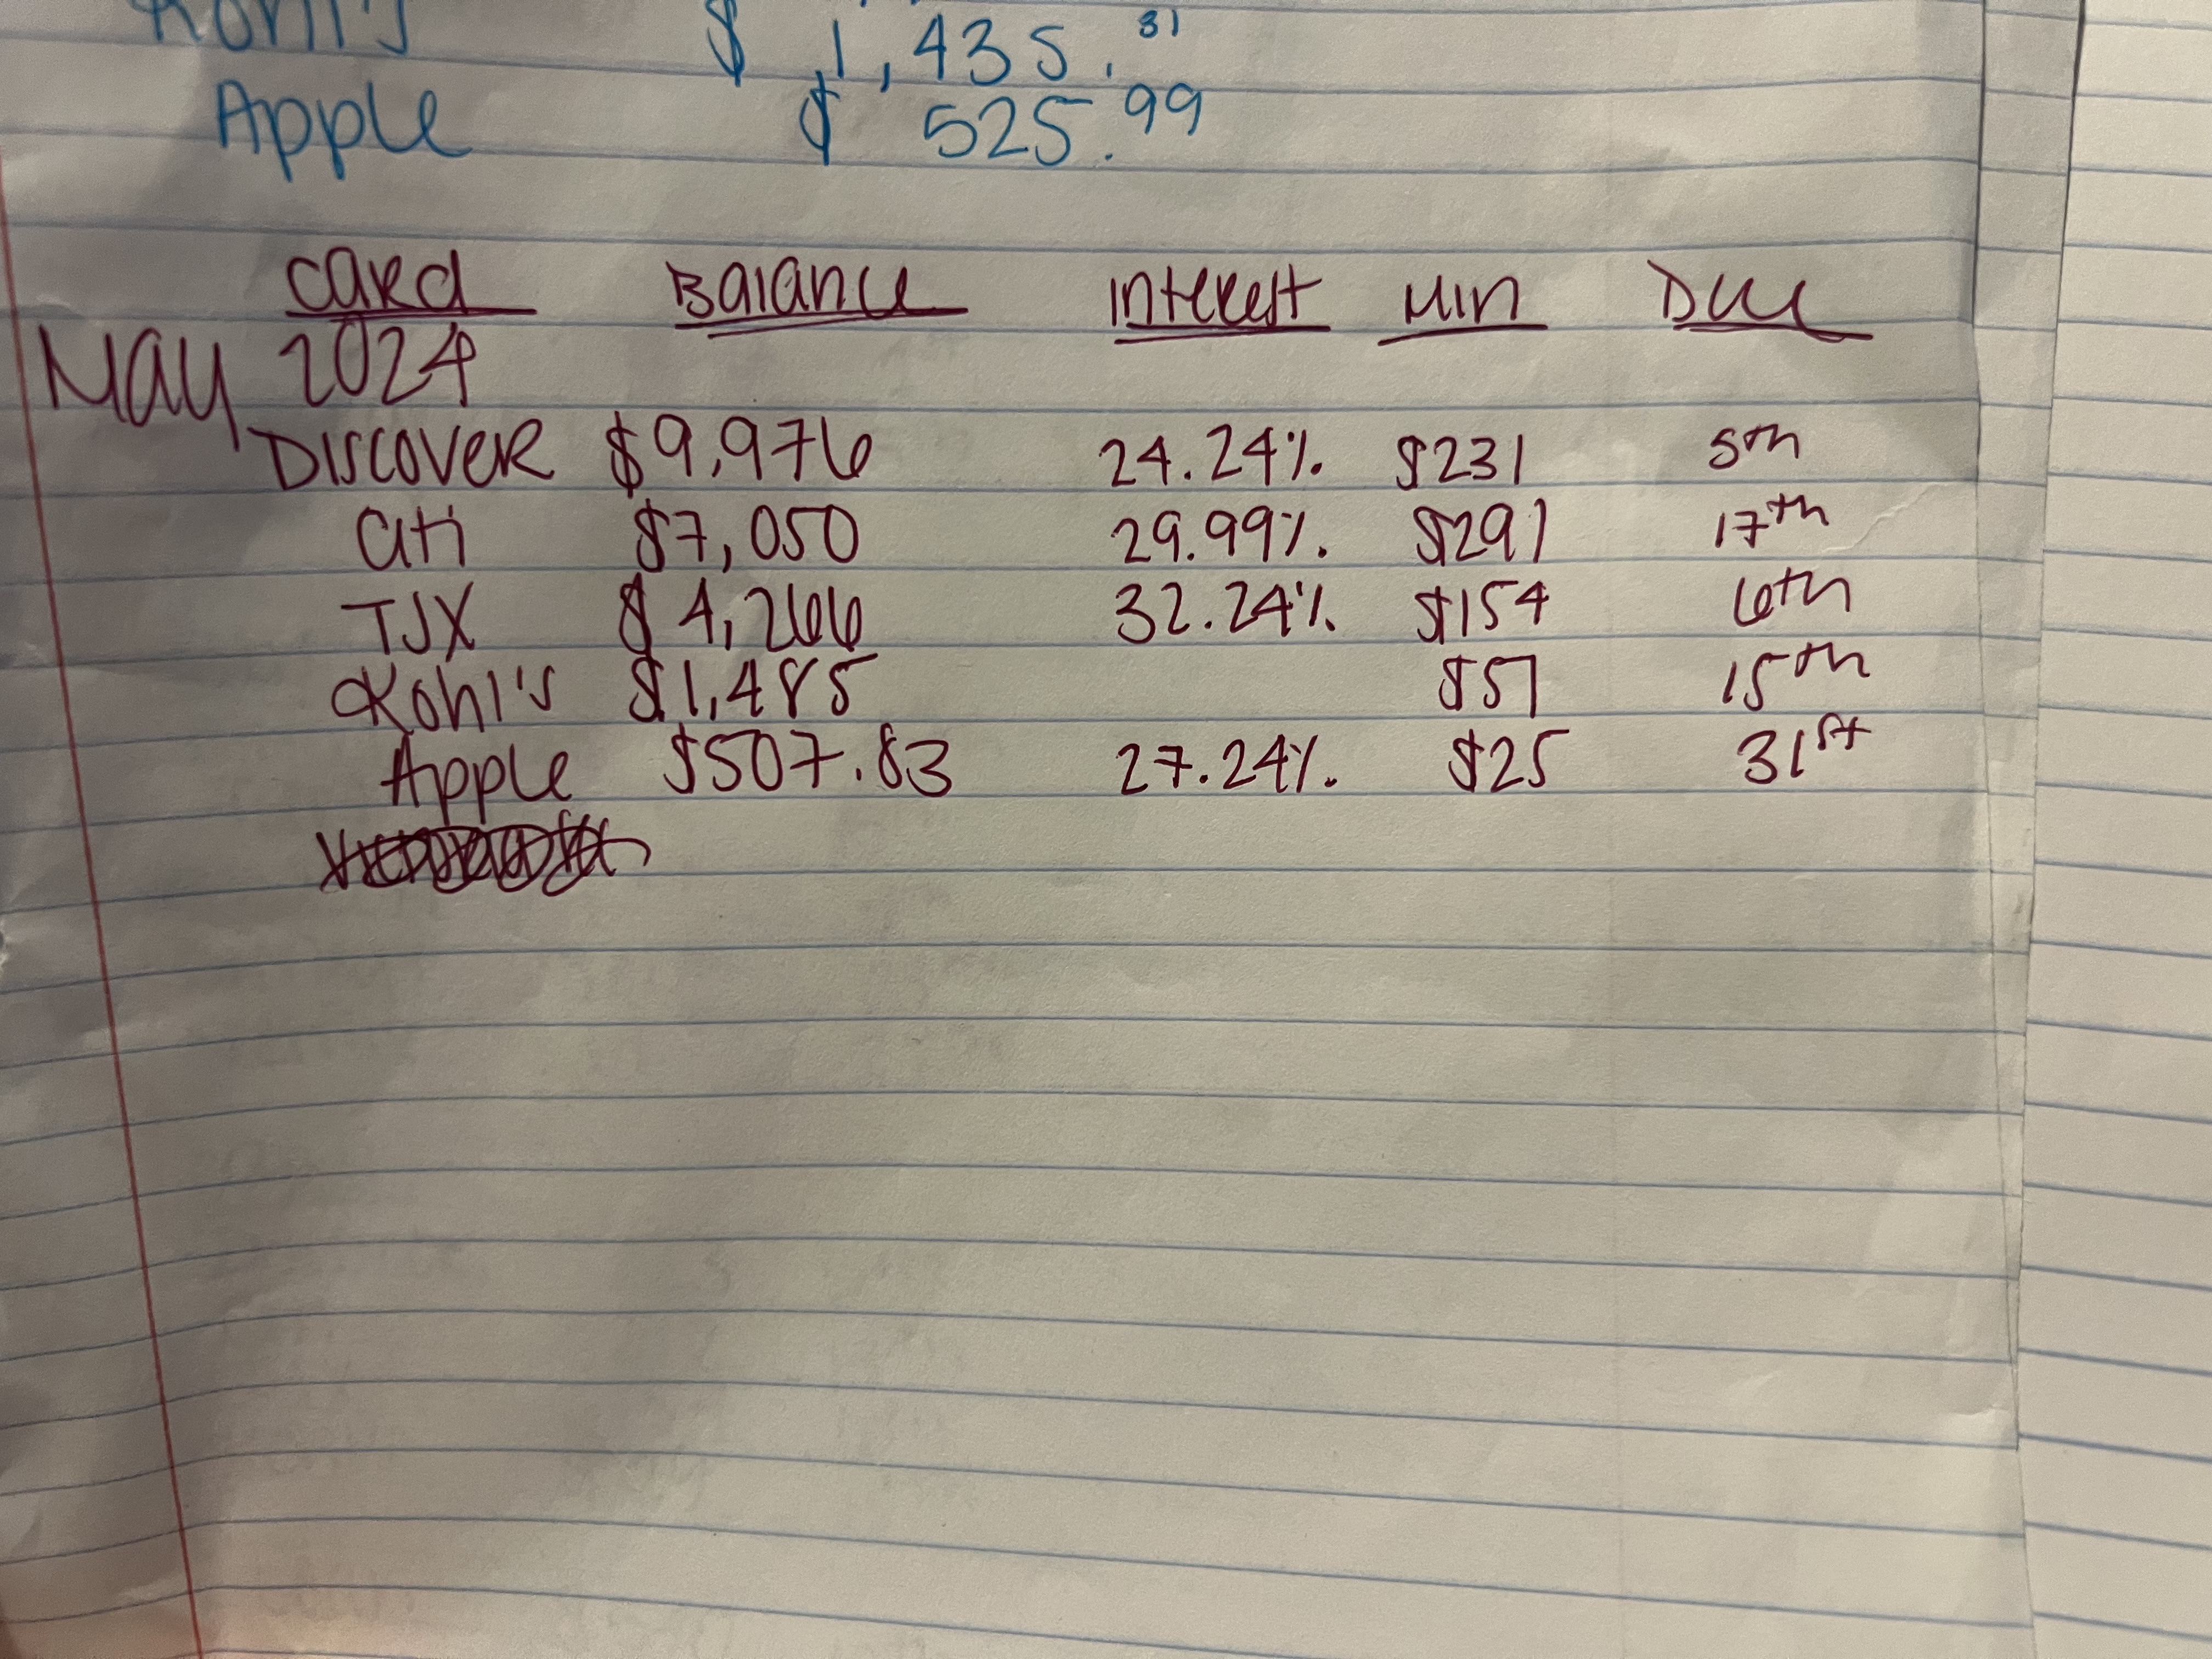 Kohl's $ 1,435.31
Apple $ 525.99
Card Balance Interest Min Due
May 2024
Discover $9,976 24.24% $231 5th
Citi $7,050 29.99% $291 17th
TJX $4,266 32.24% $154 6th
Kohl's $1,485 $51 15th
Apple $507.83 27.24% $25 31st